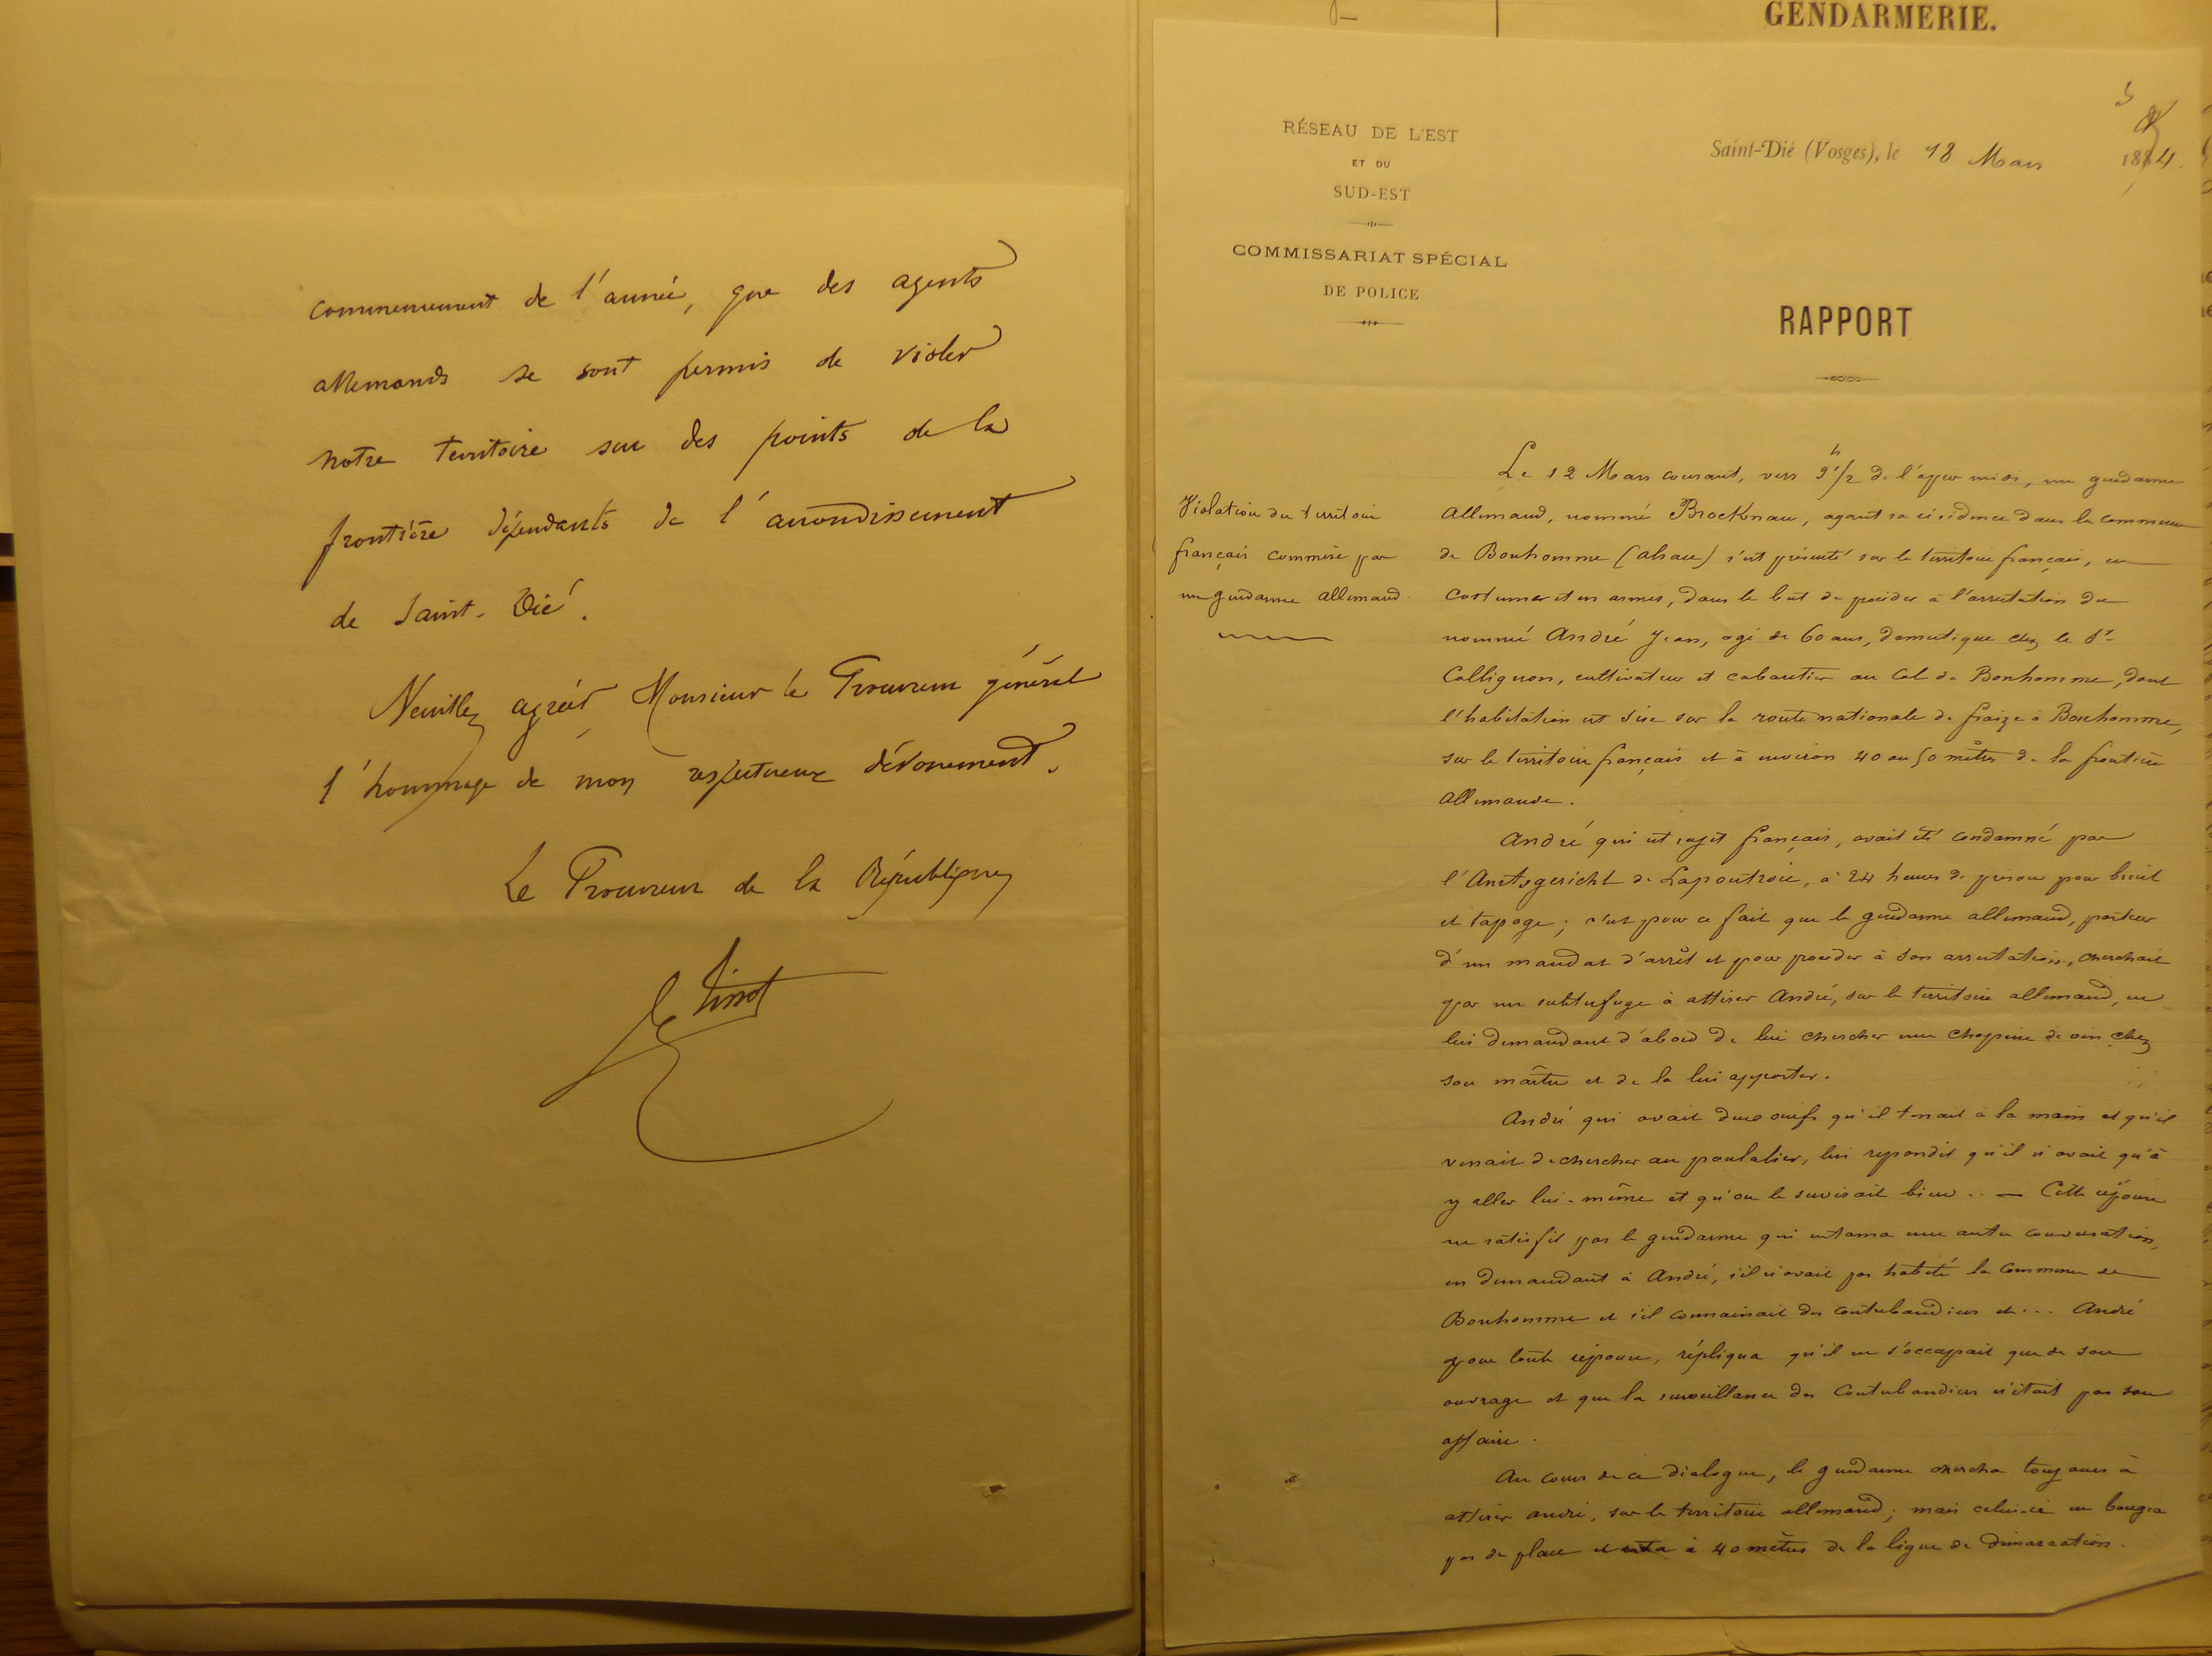 commencement de l'année, que des agents
allemands se sont permis de violer
notre territoire sur des points de la
frontière dépendants de l'arrondissement
de Saint-Dié.
Veuillez agréer Monsieur le Procureur général
l'hommage de mon respectueux dévouement.
Le Procureur de la République
GENDARMERIE.
RÉSEAU DE L'EST
ET DU
SUD-EST
COMMISSARIAT SPÉCIAL
DE POLICE
Saint-Dié (Vosges), le 18 Mars 1884.
RAPPORT
Violation du territoire
français commise par
un gendarme allemand.
Le 12 Mars courant, vers 3 h 1/2 de l'après midi, un gendarme
allemand, nommé Brocknau, ayant sa résidence dans la commune
de Bonhomme (alsace) s'est présenté sur le territoire français, en
costume et en armes, dans le but de procéder à l'arrestation du
nommé André Jean, agé de 60 ans, domestique chez le Sr
Collignon, cultivateur et cabaretier au Col du Bonhomme, dont
l'habitation est sise sur la route nationale de fraize à Bonhomme,
sur le territoire français et à environ 40 ou 50 mètres de la frontière
allemande.
André qui est sujet français, avait été condamné par
l'Amtsgericht de Lapoutroie, à 24 heures de prison pour bruit
et tapage; c'est pour ce fait que le gendarme allemand, porteur
d'un mandat d'arrêt et pour procéder à son arrestation, cherchait
par un subtufuge à attirer André, sur le territoire allemand, en
lui demandant d'abord de lui chercher une chopine de vin chez
son maître et de la lui apporter.
André qui avait deux oeufs qu'il tenait à la main et qu'il
venait de chercher au poulalier, lui repondit qu'il n'avait qu'à
y aller lui-même et qu'on le servirait bien.. — Cette réponse
ne satisfit pas le gendarme qui entama une autre conversation,
en demandant à André, s'il n'avait pas habité la Commune de
Bonhomme et s'il connaissait des contrebandiers et... André
pour toute réponse, répliqua qu'il ne s'occupait que de son
ouvrage et que la surveillance des contrebandiers n'était pas son
affaire.
Au cours de ce dialogue, le gendarme chercha toujours à
attirer andré, sur le territoire allemand; mais celui-ci ne bougea
pas de place et resta à 40 mètres de la ligne de démarcation.